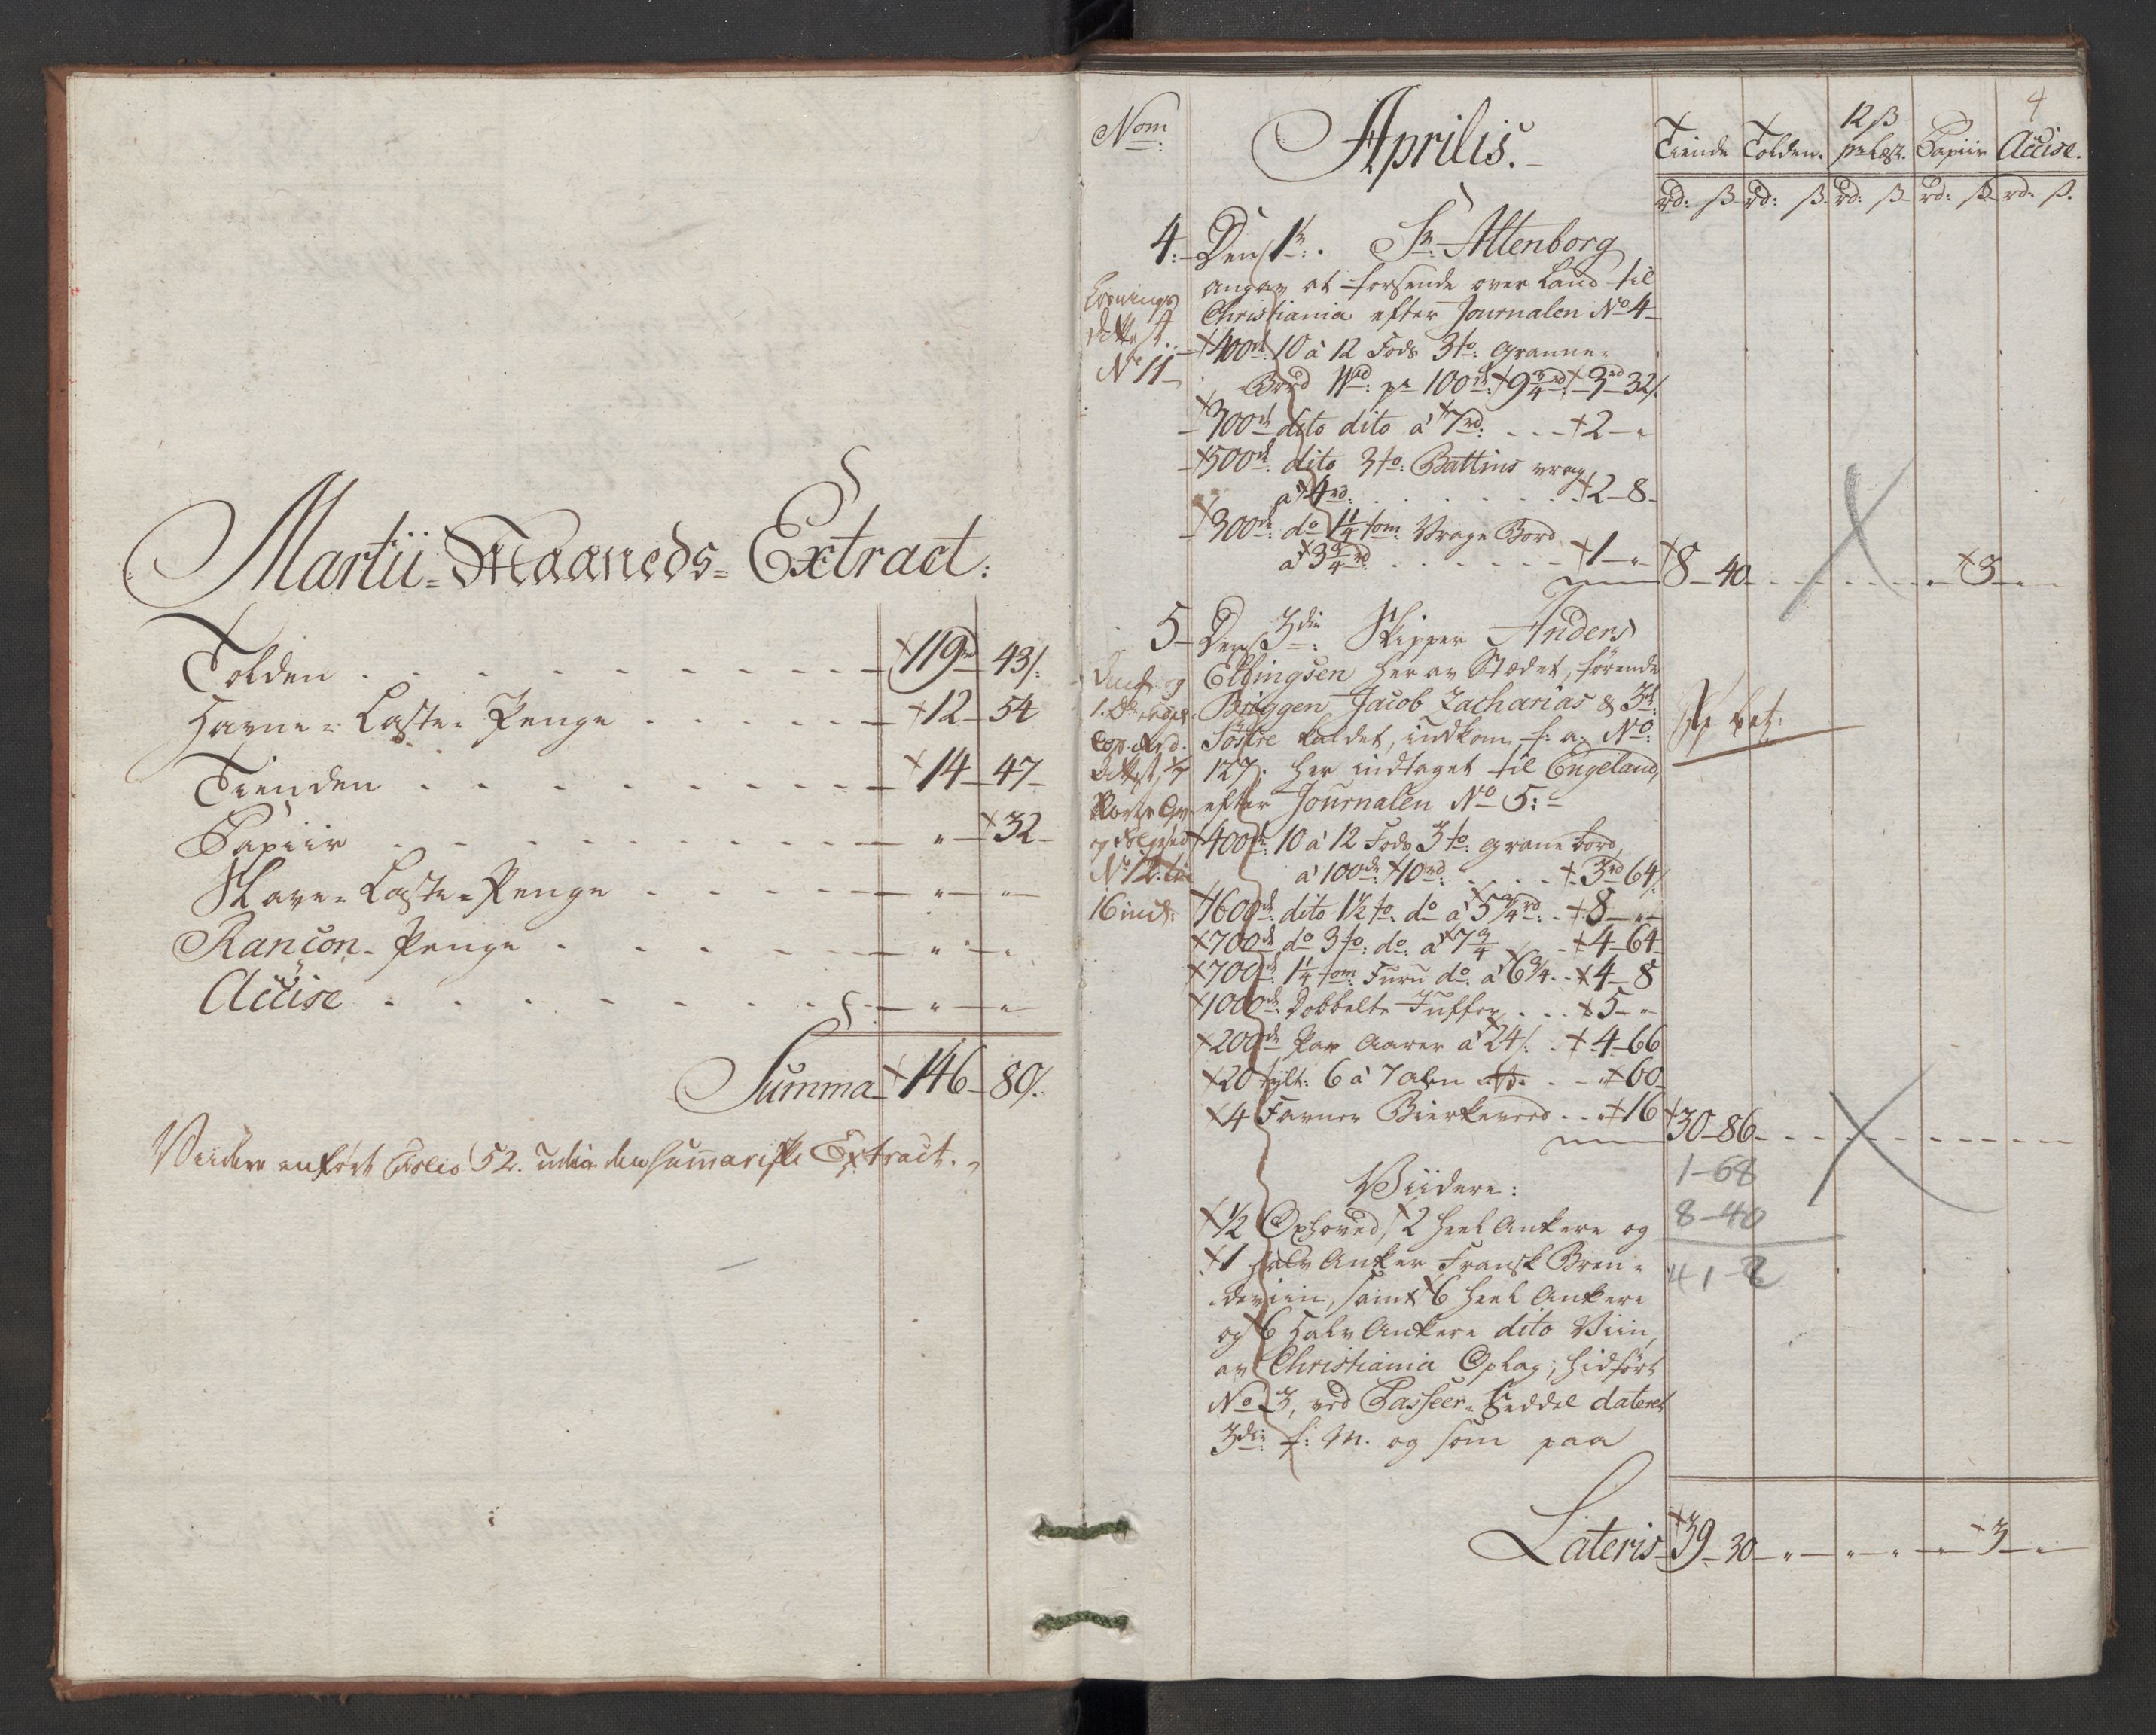 Martii=Maaneds=Extract:
Tolden . . . . . . . . . 119 rd 43 ß:
Havne=Laste=Penge . . . . . 12 54
Tienden . . . . . . . . 14 47
Papiir . . . . . . . . . " 32
Slave=Laste=Penge . . . . . " "
Rancon=Penge . . . . . . " "
Accise . . . . . . . . . " "
Summa 146 80 ß.
Viidere anført Folio 52. udi den summariske Extract.
4
Nom:
Aprilis.
Tiende Tolden. 12 ß pr Læst. Papiir Accise.
rd: ß rd: ß. rd: ß rd: ß rd: ß.
4. Den 1te: Sr. Altenborg
angav at forsende over Land til
Christiania efter Journalen No 4
No 11
400de 10 à 12 Fods 3to: Granne=
Bord pr 100de 9 3/4 rd 3 rd 32 ß.
300de dito dito à 7 rd: . . . 2 "
500de dito 3to: Battins vrag
à 4 rd: . . . . . . . 2 8
300de do 1 1/4 tom: Vrage Bord
à 3 3/4 rd . . . . . . 1 " 8 40 . . . . . 3 "
5 Den 3die: Skipper Anders
Ellingsen her av Stædet, førende
Briggen Jacob Zacharias & 3de
Søstre kaldet, indkom f: a: No:
127. her indtaget til Engeland,
efter Journalen No 5:
400de 10 à 12 Fods 3to: grane bord,
à 100de 10 rd: . . . . 3 rd 64 ß
No 12 til
16 incl:
1600de dito 1 1/2 to: do à 5 3/4 rd: . 8 "
700de do 3to: do: à 7 3/4 . . 4 64
700de 1 1/4 tom: Furu do: à 6 3/4 . . 4 8
1000de Dobbelte Juffer . . . 5 "
200de Par Aarer à 24 ß: . 4 66
20 tylt: 6 à 7 alen . . " 60
4 Favner Birkeveed . . . " 16 30 86
1-68
8-40
41-2
Viidere:
1/2 Oxhoved, 2 heel Ankere og
1 halv Anker Fransk Bren=
deviin, samt 6 heel Ankere
og 6 halv Ankere dito Viin,
av Christiania Oplag; hidført
No 3, ved Passeer=Seddel dateret
3die f: M. og som paa
Lateris 39 30 " " " " 3 "